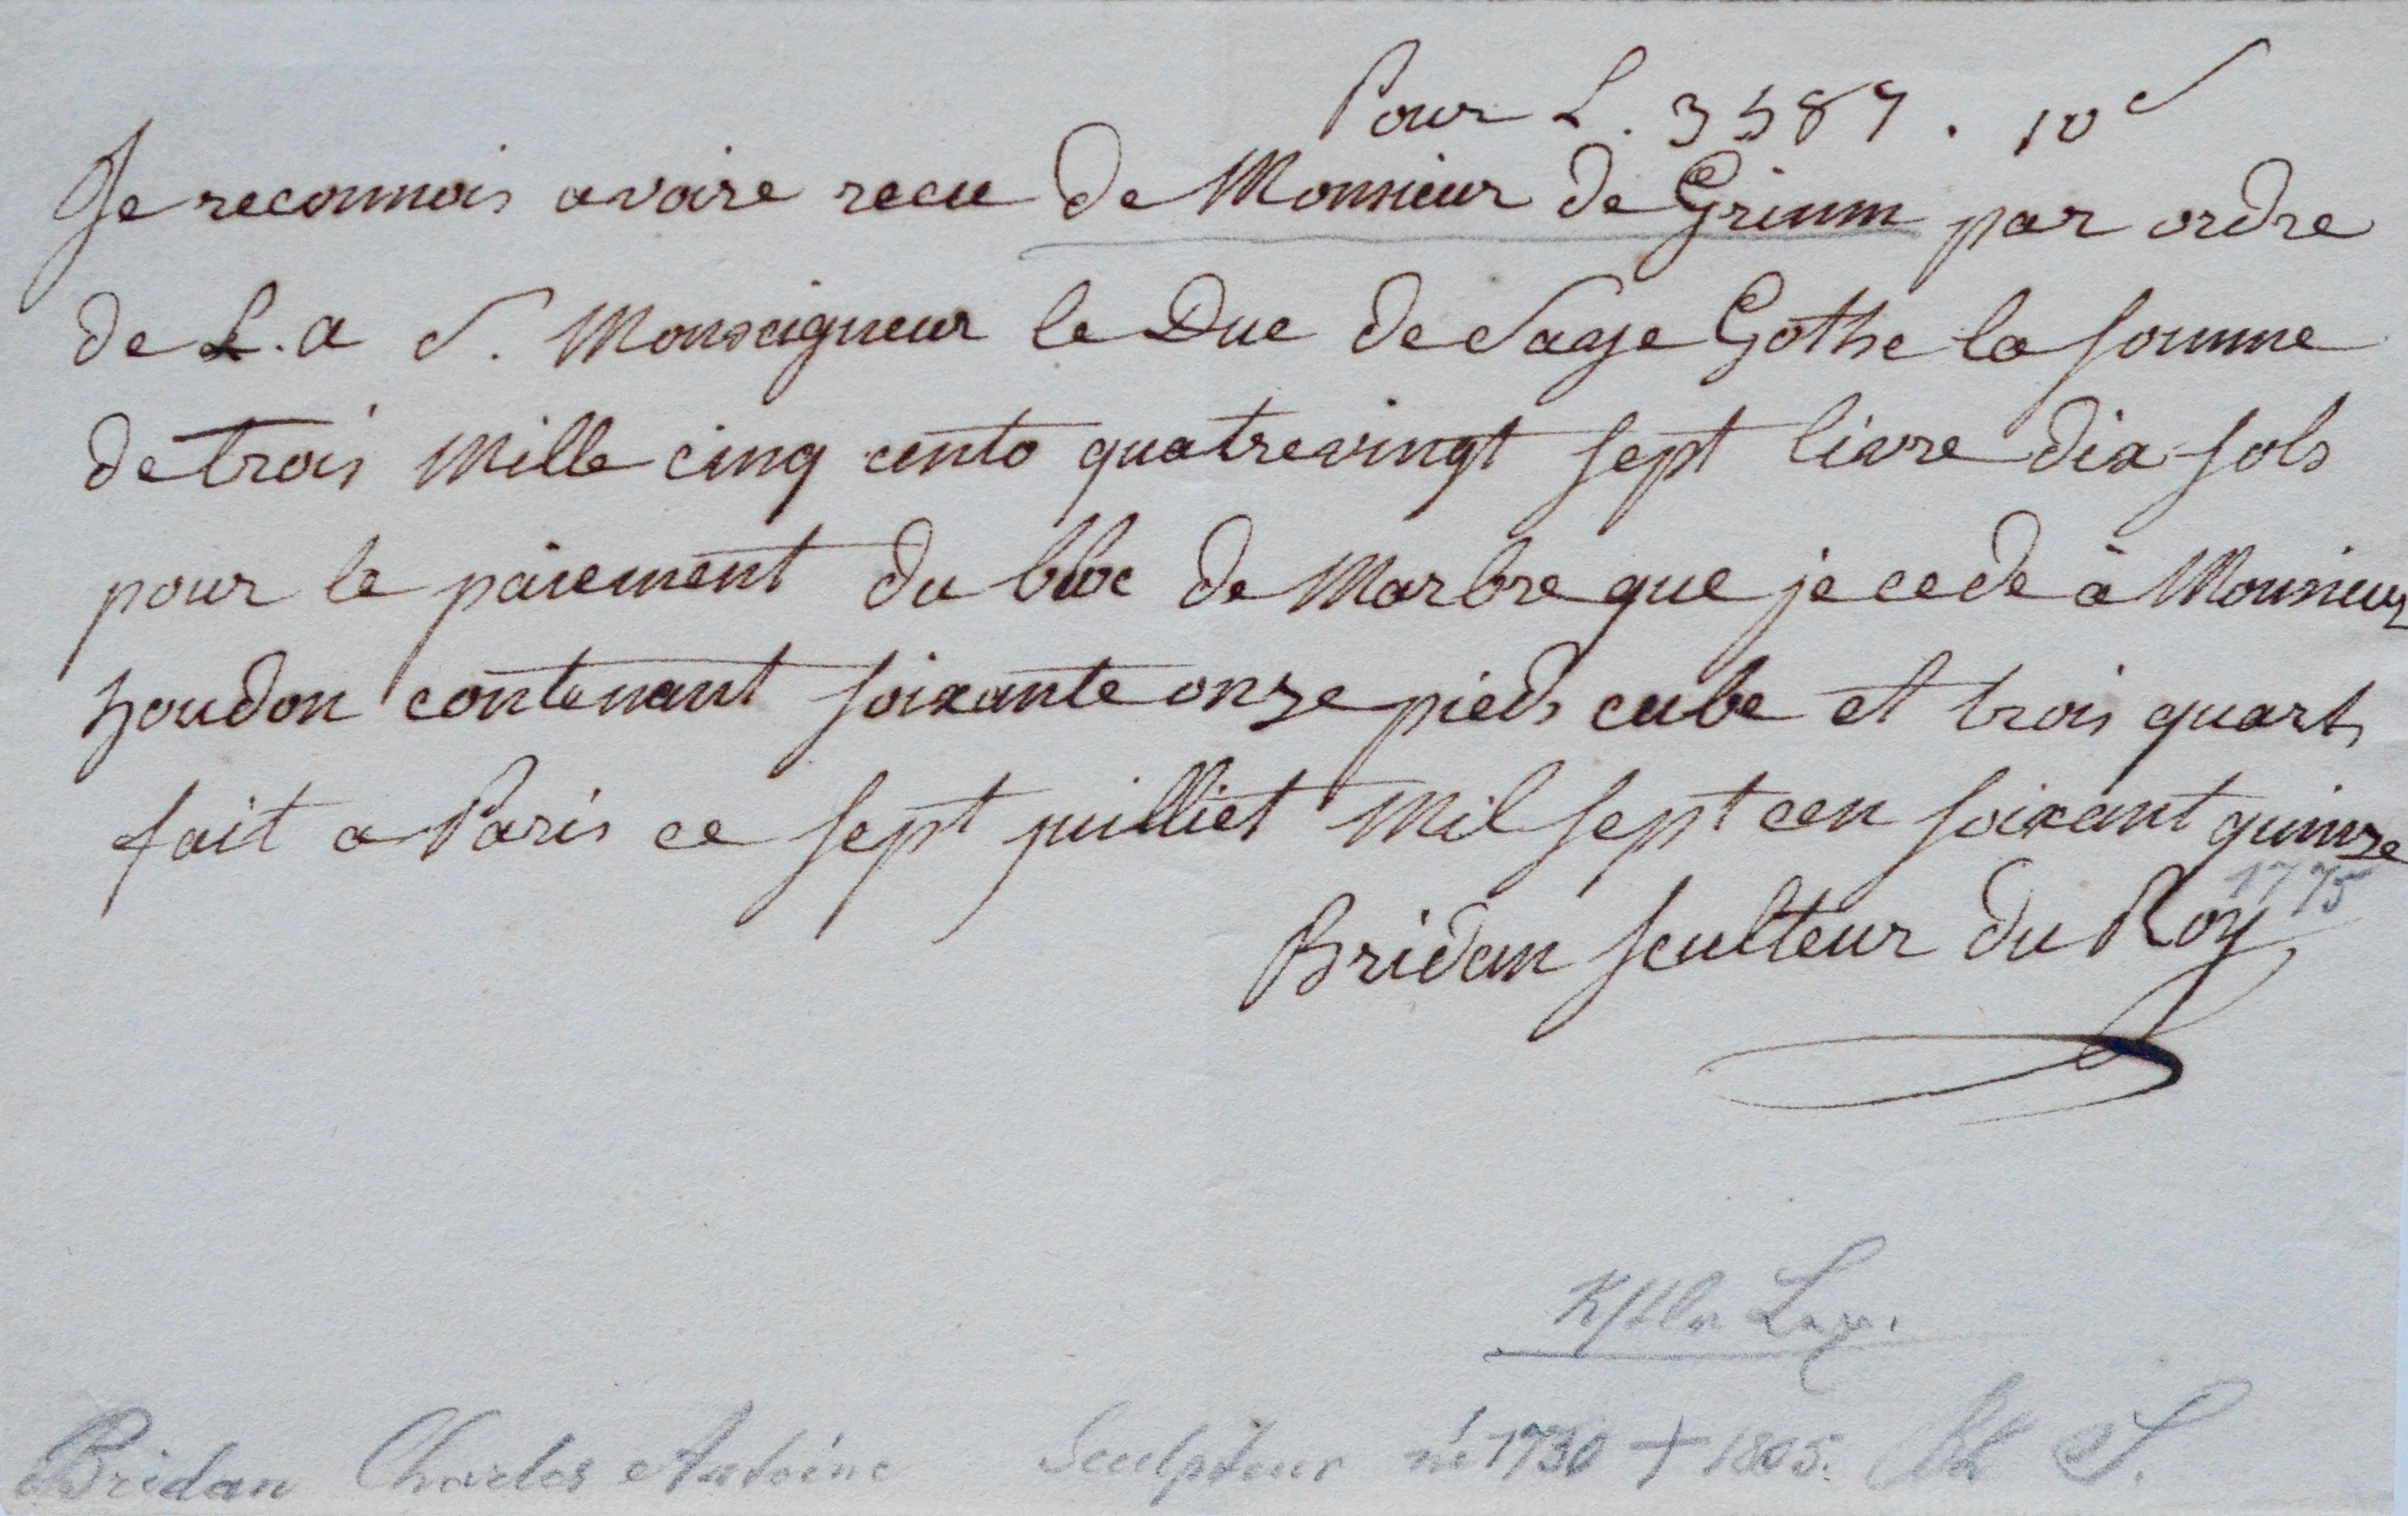 Pour L. 3587. 10 s
Je reconnois avoire recu de Monsieur de Grimm par ordre
de L. a S. Monseigneur le Duc de Saxe Gothe la somme
de trois mille cinq cents quatrevingt sept livre dix sols
pour le paiement du bloc de Marbre que je cede à Monsieur
houdon contenant soixante onze pieds cube et trois quarts
fait a Paris ce sept juilliet mil sept cen soixant quinze
1775
Bridan sculteur du Roy
Bridan Charles Antoine Sculpteur né 1730 + 1805.